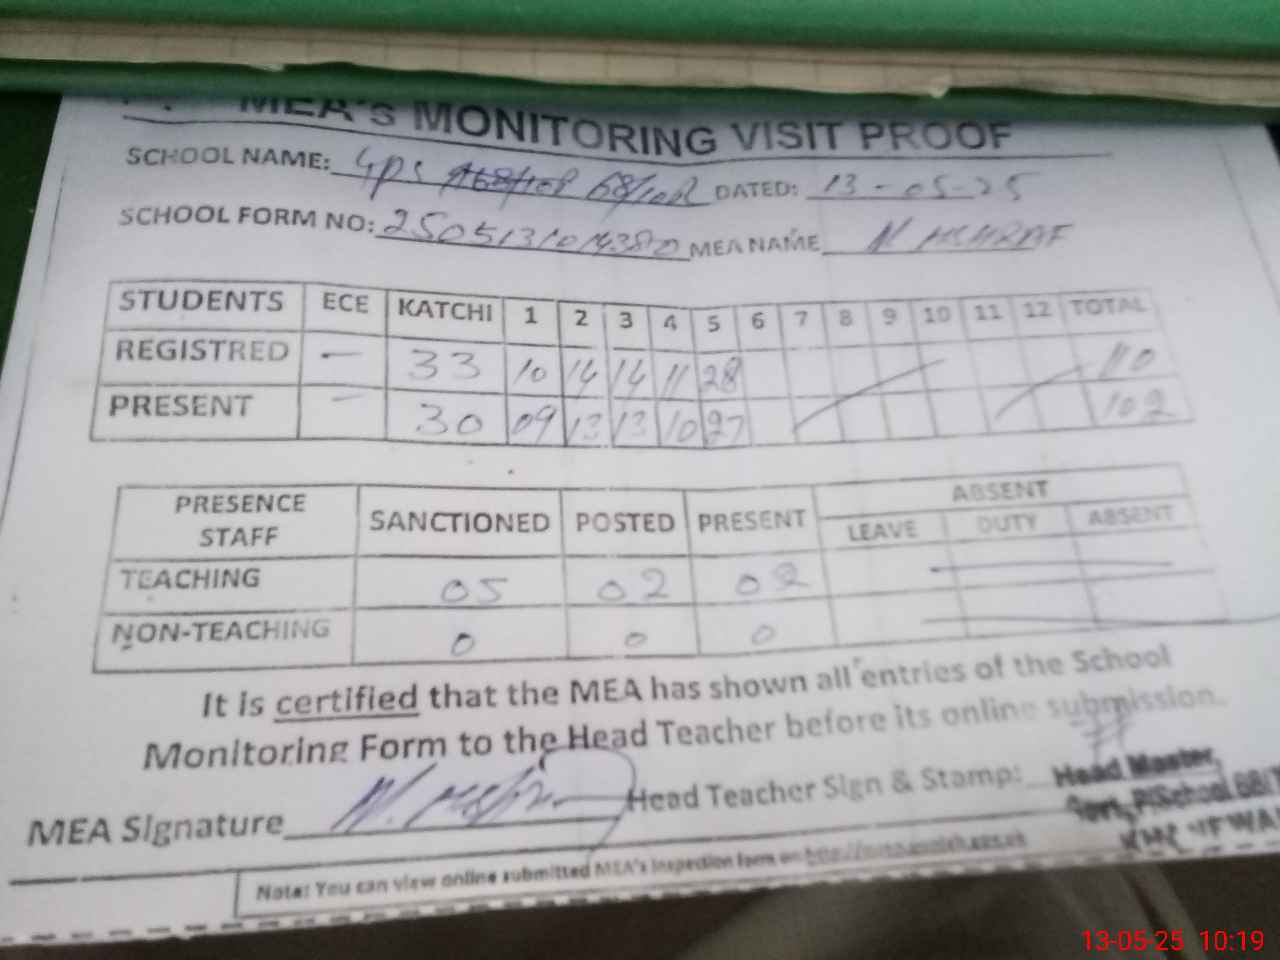 MEA's MONITORING VISIT PROOF
SCHOOL NAME: GPS 68/10R DATED: 13-05-25
SCHOOL FORM NO: MEA NAME M ASHRAF
STUDENTS ECE KATCHI 1 2 3 4 5 6 7 8 9 10 11 12 TOTAL
REGISTRED — 33 10 14 14 11 28 110
PRESENT — 30 09 13 13 10 27 102
PRESENCE STAFF SANCTIONED POSTED PRESENT ABSENT
LEAVE DUTY ABSENT
TEACHING 05 02 02
NON-TEACHING 0 0 0
It is certified that the MEA has shown all entries of the School
Monitoring Form to the Head Teacher before its online submission.
MEA Signature Head Teacher Sign & Stamp:
Head Master,
Govt. P/School 68/
Note: You can view online submitted MEA's inspection form on
13-05-25 10:19